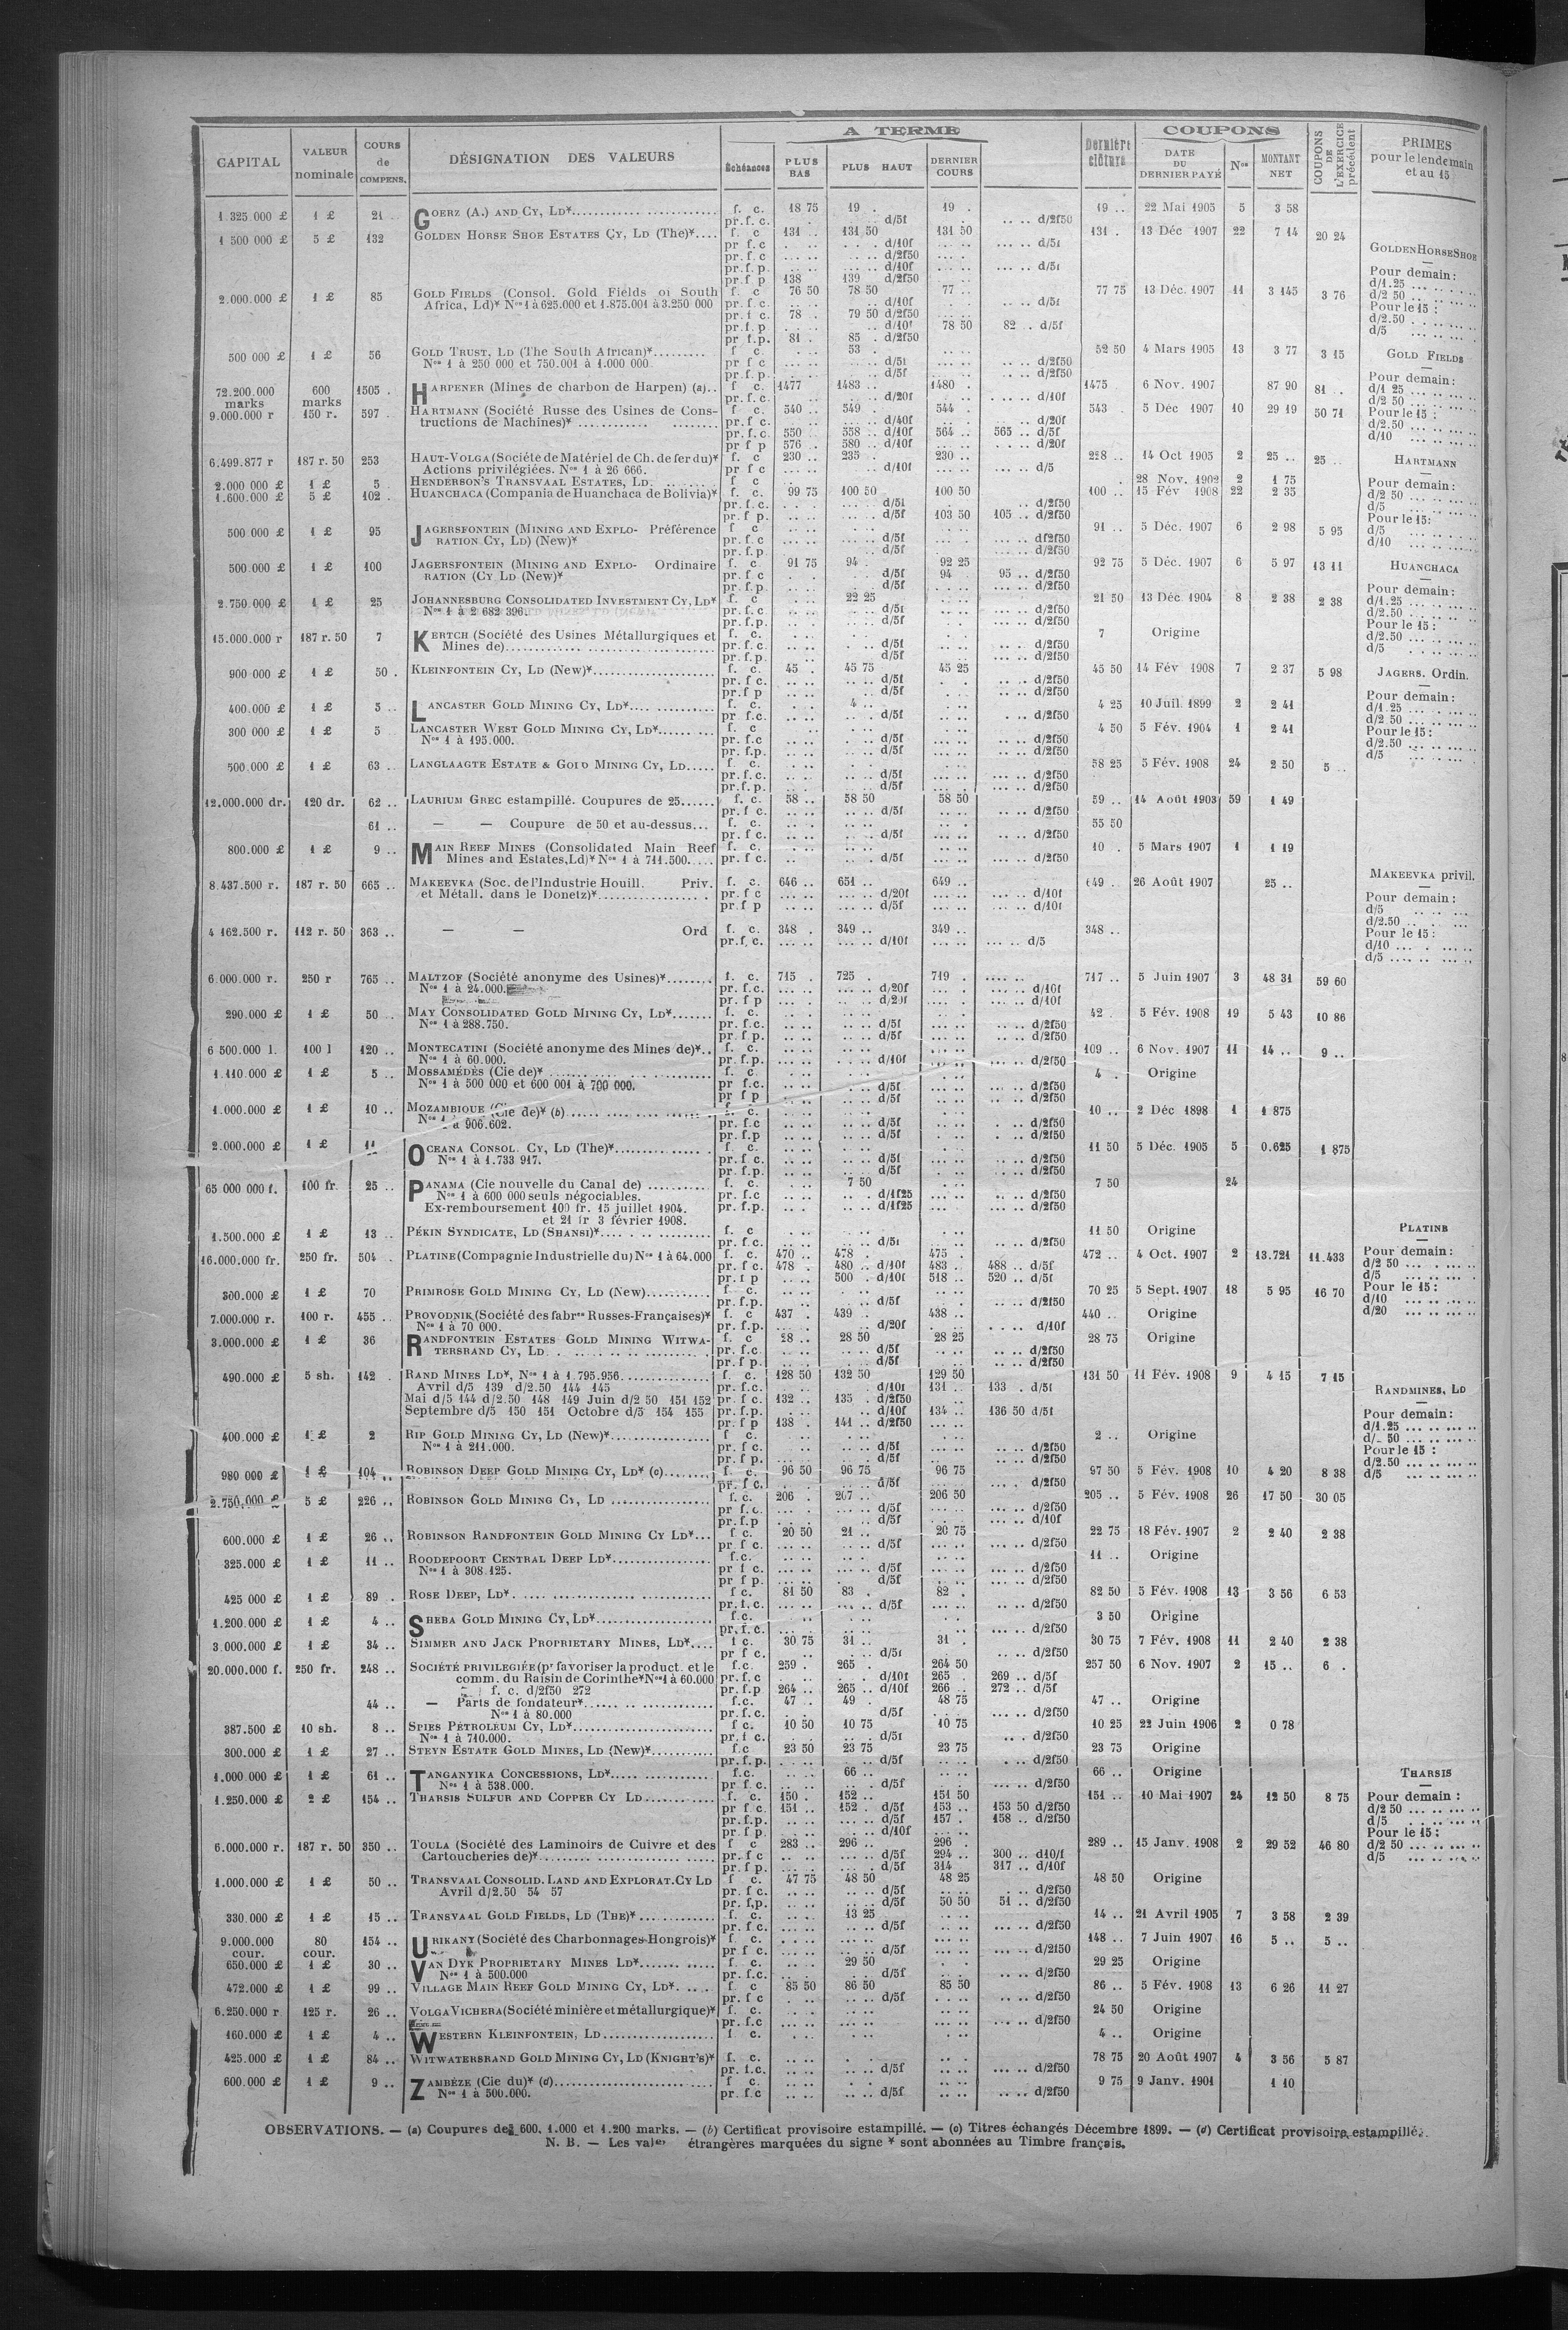 A TERME
COUPONS
CAPITAL VALEUR nominale COURS de COMPENS. DÉSIGNATION DES VALEURS Échéances PLUS BAS PLUS HAUT DERNIER COURS Dernière clôture DATE DU DERNIER PAYÉ Nos MONTANT NET COUPONS DE L'EXERCICE précédent PRIMES pour le lendemain et au 15
1.325 000 £ 1 £ 21 .. GOERZ (A.) AND CY, LD*.... f. c. 18 75 19 . 19 . 19 .. 22 Mai 1905 5 3 58
pr. f. c. d/5f d/2f50
1 500 000 £ 5 £ 132 GOLDEN HORSE SHOE ESTATES CY, LD (The)*.... f. c 131 .. 131 50 131 50 131 . 13 Déc 1907 22 7 14 20 24
pr f.c d/10f d/5f
pr. f. c d/2f50
pr. f. p. d/10f d/5f
pr. f. p 138 139 d/2f50
2.000.000 £ 1 £ 85 GOLD FIELDS (Consol. Gold Fields of South f. c 76 50 78 50 77 .. 77 75 13 Déc. 1907 11 3 145 3 76
Africa, Ld)* Nos 1 à 625.000 et 1.875.001 à 3.250 000 pr. f. c. d/10f d/5f
pr. f. c 78 . 79 50 d/2f50
pr. f. p d/10f 78 50 82 . d/5f
pr. f. p. 81 . 85 . d/2f50
500 000 £ 1 £ 56 GOLD TRUST, LD (The South African)*.... f c 53 . 52 50 4 Mars 1905 13 3 77 3 15
Nos 1 à 250 000 et 750.001 à 1.000 000 pr f c d/5f d/2f50
pr. f. p. d/5f d/2f50
72.200.000 marks 600 marks 1505 . HARPENER (Mines de charbon de Harpen) (a).. f c. 1477 1483 .. 1480 . 1475 6 Nov. 1907 87 90 81 ..
pr. f. c. d/20f d/10f
9.000.000 r 150 r. 597 . HARTMANN (Société Russe des Usines de Cons- f c. 540 .. 549 . 544 . 543 . 5 Déc 1907 10 29 19 50 71
tructions de Machines)*.... pr. f c. d/40f d/20f
pr. f. c. 550 558 .. d/10f 564 .. 565 .. d/5f
pr f p 576 . 580 .. d/10f d/20f
6.499.877 r 187 r. 50 253 HAUT-VOLGA (Société de Matériel de Ch. de fer du)* f. c 230 .. 235 . 230 .. 228 .. 14 Oct 1905 2 25 .. 25 ..
Actions privilégiées. Nos 1 à 26 666. pr f c d/10f d/5
2.000 000 £ 1 £ 5 . HENDERSON'S TRANSVAAL ESTATES, LD.... f c 28 Nov. 1902 2 1 75
1.600.000 £ 5 £ 102 . HUANCHACA (Compania de Huanchaca de Bolivia)* f. c. 99 75 100 50 100 50 100 .. 15 Fév 1908 22 2 35
pr. f. c. d/5f d/2f50
pr. f p. d/5f 103 50 105 .. d/2f50
500 000 £ 1 £ 95 JAGERSFONTEIN (MINING AND EXPLO- Préférence f c 91 .. 5 Déc. 1907 6 2 98 5 95
RATION CY, LD) (New)* pr. f. c d/5f df2f50
pr. f. p. d/5f d/2f50
500.000 £ 1 £ 100 JAGERSFONTEIN (MINING AND EXPLO- Ordinaire f. c. 91 75 94 . 92 25 92 75 5 Déc. 1907 6 5 97 13 11
RATION (CY LD (New)* pr. f c d/5f 94 . 95 .. d/2f50
pr. f. p. d/5f d/2f50
2.750.000 £ 1 £ 25 JOHANNESBURG CONSOLIDATED INVESTMENT CY, LD* f. c 22 25 21 50 13 Déc 1904 8 2 38 2 38
Nos 1 à 2 682 396. pr. f. c. d/5f d/2f50
pr. f. p. d/5f d/2f50
15.000.000 r 187 r. 50 7 KERTCH (Société des Usines Métallurgiques et f. c. 7 Origine
Mines de).... pr. f. c. d/5f d/2f50
pr. f. p d/5f d/2f50
900 000 £ 1 £ 50 . KLEINFONTEIN CY, LD (New)*.... f. c. 45 . 45 75 45 25 45 50 14 Fév 1908 7 2 37 5 98
pr. f c. d/5f d/2f50
pr. f p d/5f d/2f50
400.000 £ 1 £ 5 .. LANCASTER GOLD MINING CY, LD*.... f. c. 4 .. 4 25 10 Juil. 1899 2 2 41
pr f.c. d/5f d/2f50
300 000 £ 1 £ 5 LANCASTER WEST GOLD MINING CY, LD*.... f. c 4 50 5 Fév. 1904 1 2 41
Nos 1 à 195.000. pr. f.c d/5f d/2f50
pr. f.p. d/5f d/2f50
500.000 £ 1 £ 63 .. LANGLAAGTE ESTATE & GOLD MINING CY, LD.... f. c. 58 25 5 Fév. 1908 24 2 50 5 ..
pr. f.c. d/5f d/2f50
pr. f.p. d/5f d/2f50
12.000.000 dr. 120 dr. 62 .. LAURIUM GREC estampillé. Coupures de 25.... f. c. 58 .. 58 50 58 50 59 .. 14 Août 1903 59 1 49
pr. f c. d/5f d/2f50
61 .. — — Coupure de 50 et au-dessus... f. c. 55 50
pr. f c. d/5f d/2f50
800.000 £ 1 £ 9 .. MAIN REEF MINES (Consolidated Main Reef f. c. 10 . 5 Mars 1907 1 1 19
Mines and Estates, Ld)* Nos 1 à 711.500.... pr. f c. d/5f d/2f50
8.437.500 r. 187 r. 50 665 .. MAKEEVKA (Soc. de l'Industrie Houill. Priv. f. c. 646 .. 651 .. 649 .. 649 .. 26 Août 1907 25 ..
et Métall. dans le Donetz)*.... pr. f c d/20f d/10f
pr. f p d/5f d/10f
4 162.500 r. 112 r. 50 363 .. — — Ord f. c. 348 . 349 .. 349 .. 348 ..
pr. f. c. d/10f d/5
6.000.000 r. 250 r 765 .. MALTZOF (Société anonyme des Usines)*.... f. c. 715 . 725 . 719 . 717 .. 5 Juin 1907 3 48 31 59 60
Nos 1 à 24.000. pr. f.c. d/20f d/10f
pr. f p d/20f d/10f
290.000 £ 1 £ 50 .. MAY CONSOLIDATED GOLD MINING CY, LD*.... f. c. 42 . 5 Fév. 1908 19 5 43 10 86
Nos 1 à 288.750. pr. f.c. d/5f d/2f50
pr. f p. d/5f d/2f50
6 500.000 l. 100 l 120 .. MONTECATINI (Société anonyme des Mines de)*.. f. c. 109 .. 6 Nov. 1907 11 14 .. 9 ..
Nos 1 à 60.000. pr. f.p. d/10f d/2f50
1.110.000 £ 1 £ 5 .. MOSSAMÉDÈS (Cie de)*.... f. c. 4 . Origine
Nos 1 à 500 000 et 600 001 à 700 000. pr f.c. d/5f d/2f50
pr f p d/5f d/2f50
1.000.000 £ 1 £ 10 .. MOZAMBIQUE (Cie de)* (b).... f. c. 10 .. 2 Déc 1898 1 1 875
Nos 1 à 906.602. pr. f.c d/5f d/2f50
pr. f.p d/5f d/2f50
2.000.000 £ 1 £ 11 OCEANA CONSOL. CY, LD (The)*.... f. c. 11 50 5 Déc. 1905 5 0.625 1 875
Nos 1 à 1.733 917. pr. f c. d/5f d/2f50
pr. f.p. d/5f d/2f50
65 000 000 f. 100 fr. 25 .. PANAMA (Cie nouvelle du Canal de).... f. c. 7 50 7 50 24
Nos 1 à 600 000 seuls négociables. pr. f.c d/1f25 d/2f50
Ex-remboursement 100 fr. 15 juillet 1904. pr. f.p. d/1f25 d/2f50
et 21 fr 3 février 1908.
1.500.000 £ 1 £ 13 .. PÉKIN SYNDICATE, LD (SHANSI)*.... f. c 11 50 Origine
pr. f.c. d/5f d/2f50
16.000.000 fr. 250 fr. 504 . PLATINE (Compagnie Industrielle du) Nos 1 à 64.000 f. c. 470 .. 478 . 475 . 472 .. 4 Oct. 1907 2 13.721 11.433
pr. f c. 478 . 480 .. d/10f 483 .. 488 .. d/5f
pr. f p 500 . d/10f 518 .. 520 .. d/5f
300.000 £ 1 £ 70 PRIMROSE GOLD MINING CY, LD (New).... f. c. 70 25 5 Sept. 1907 18 5 95 16 70
pr. f.p. d/5f d/2f50
7.000.000 r. 100 r. 455 .. PROVODNIK (Société des fabres Russes-Françaises)* f. c 437 . 439 . 438 .. 440 .. Origine
Nos 1 à 70 000. pr. f.p. d/20f d/10f
3.000.000 £ 1 £ 36 RANDFONTEIN ESTATES GOLD MINING WITWA- f. c 28 .. 28 50 28 25 28 75 Origine
TERSRAND CY, LD.... pr. f.c. d/5f d/2f50
pr. f p. d/5f d/2f50
490.000 £ 5 sh. 142 . RAND MINES LD*, Nos 1 à 1.795.956.... f. c. 128 50 132 50 129 50 131 50 11 Fév. 1908 9 4 15 7 15
Avril d/5 139 d/2.50 144 145 pr. f.c. d/10f 131 .. 133 . d/5f
Mai d/5 144 d/2.50 148 149 Juin d/2 50 151 152 pr. f c. 132 .. 135 . d/2f50
Septembre d/5 150 151 Octobre d/5 154 155 pr. f.p. d/10f 134 .. 136 50 d/5f
pr. f p 138 . 141 .. d/2f50
400.000 £ 1 £ 2 RIP GOLD MINING CY, LD (New)*.... f c. 2 .. Origine
Nos 1 à 211.000. pr. f c. d/5f d/2f50
pr. f p. d/5f d/2f50
980 000 £ 1 £ 104 .. ROBINSON DEEP GOLD MINING CY, LD* (c).... f. c. 96 50 96 75 96 75 97 50 5 Fév. 1908 10 4 20 8 38
pr. f c. d/5f d/2f50
2.750.000 £ 5 £ 226 .. ROBINSON GOLD MINING CY, LD.... f. c. 206 . 207 .. 206 50 205 .. 5 Fév. 1908 26 17 50 30 05
pr f.c. d/5f d/2f50
pr. f.p d/5f d/10f
600.000 £ 1 £ 26 .. ROBINSON RANDFONTEIN GOLD MINING CY LD*... f c. 20 50 21 .. 20 75 22 75 18 Fév. 1907 2 2 40 2 38
pr f c. d/5f d/2f50
325.000 £ 1 £ 11 .. ROODEPOORT CENTRAL DEEP LD*.... f.c. 11 .. Origine
Nos 1 à 308.125. pr f c. d/5f d/2f50
pr f p. d/5f d/2f50
425 000 £ 1 £ 89 . ROSE DEEP, LD*.... f c. 81 50 83 . 82 . 82 50 5 Fév. 1908 13 3 56 6 53
pr. f. c. d/5f d/2f50
1.200.000 £ 1 £ 4 .. SHEBA GOLD MINING CY, LD*.... f.c. 3 50 Origine
pr. f. c. d/2f50
3.000.000 £ 1 £ 34 .. SIMMER AND JACK PROPRIETARY MINES, LD*.... f c. 30 75 31 .. 31 . 30 75 7 Fév. 1908 11 2 40 2 38
pr f c. d/5f d/2f50
20.000.000 f. 250 fr. 248 .. SOCIÉTÉ PRIVILEGIÉE (pr favoriser la product. et le f.c. 259 . 265 . 264 50 257 50 6 Nov. 1907 2 15 .. 6 .
comm. du Raisin de Corinthe* Nos 1 à 60.000 pr. f.c d/10f 265 . 269 .. d/5f
f. c. d/2f50 272 pr. f.p 264 .. 265 .. d/10f 266 .. 272 .. d/5f
44 .. — Parts de fondateur*.... f.c. 47 . 49 . 48 75 47 .. Origine
Nos 1 à 80.000 pr. f.c. d/5f d/2f50
387.500 £ 10 sh. 8 .. SPIES PÉTROLÉUM CY, LD*.... f c. 10 50 10 75 10 75 10 25 22 Juin 1906 2 0 78
Nos 1 à 710.000. pr. f c. d/5f d/2f50
300.000 £ 1 £ 27 .. STEYN ESTATE GOLD MINES, LD (New)*.... f.c 23 50 23 75 23 75 23 75 Origine
pr. f.p. d/5f d/2f50
1.000 000 £ 1 £ 61 .. TANGANYIKA CONCESSIONS, LD*.... f.c. 66 .. 66 .. Origine
Nos 1 à 538.000. pr f. c. d/5f d/2f50
1.250.000 £ 2 £ 154 .. THARSIS SULFUR AND COPPER CY LD.... f. c. 150 . 152 .. 151 50 151 .. 10 Mai 1907 24 12 50 8 75
pr f c. 151 .. 152 . d/5f 153 .. 153 50 d/2f50
pr. f.p. d/5f 157 . 158 .. d/2f50
pr f p. d/10f
6.000.000 r. 187 r. 50 350 .. TOULA (Société des Laminoirs de Cuivre et des f c 283 .. 296 .. 296 . 289 .. 15 Janv. 1908 2 29 52 46 80
Cartoucheries de)*.... pr. f c d/5f 294 .. 300 .. d10/f
pr. f p. d/5f 314 317 .. d/10f
1.000.000 £ 1 £ 50 .. TRANSVAAL CONSOLID. LAND AND EXPLORAT. CY LD f c. 47 75 48 50 48 25 48 50 Origine
Avril d/2.50 54 57 pr. f c. d/5f d/2f50
pr. f.p. d/5f 50 50 51 .. d/2f50
330.000 £ 1 £ 15 .. TRANSVAAL GOLD FIELDS, LD (THE)*.... f. c. 13 25 14 .. 21 Avril 1905 7 3 58 2 39
pr. f c. d/5f d/2f50
9.000.000 cour. 80 cour. 154 .. URIKANY (Société des Charbonnages Hongrois)* f. c. 148 .. 7 Juin 1907 16 5 .. 5 ..
pr f c. d/5f d/2f50
650.000 £ 1 £ 30 .. VAN DYK PROPRIETARY MINES LD*.... f. c. 29 50 29 25 Origine
Nos 1 à 500.000 pr. f.c. d/5f d/2f50
472.000 £ 1 £ 99 .. VILLAGE MAIN REEF GOLD MINING CY, LD*.... f c 85 50 86 50 85 50 86 .. 5 Fév. 1908 13 6 26 11 27
pr. f c d/5f d/2f50
6.250.000 r 125 r. 26 .. VOLGA VICHERA (Société minière et métallurgique)* f. c. 24 50 Origine
pr. f.c d/2f50
160.000 £ 1 £ 4 .. WESTERN KLEINFONTEIN, LD.... f c. 4 .. Origine
425.000 £ 1 £ 84 .. WITWATERSRAND GOLD MINING CY, LD (KNIGHT'S)* f. c. 78 75 20 Août 1907 4 3 56 5 87
pr. f.c. d/5f d/2f50
600.000 £ 1 £ 9 .. ZAMBÈZE (Cie du)* (d).... f c. 9 75 9 Janv. 1901 1 10
Nos 1 à 500.000. pr. f.c d/5f d/2f50
GOLDEN HORSE SHOE
Pour demain:
d/1.25
d/2 50
Pour le 15:
d/2.50
d/5
GOLD FIELDS
Pour demain:
d/1 25
d/2 50
Pour le 15:
d/2.50
d/10
HARTMANN
Pour demain:
d/2 50
d/5
Pour le 15:
d/5
d/10
HUANCHACA
Pour demain:
d/1.25
d/2.50
Pour le 15:
d/2.50
d/5
JAGERS. Ordin.
Pour demain:
d/1.25
d/2 50
Pour le 15:
d/2.50
d/5
MAKEEVKA privil.
Pour demain:
d/5
d/2.50
Pour le 15:
d/10
d/5
PLATINE
Pour demain:
d/2 50
d/5
Pour le 15:
d/10
d/20
RANDMINES, LD
Pour demain:
d/1.25
d/. 50
Pour le 15 :
d/2.50
d/5
THARSIS
Pour demain :
d/2 50
d/5
Pour le 15:
d/2 50
d/5
OBSERVATIONS. — (a) Coupures de 600, 1.000 et 1.200 marks. — (b) Certificat provisoire estampillé. — (c) Titres échangés Décembre 1899. — (d) Certificat provisoire estampillé.
N. B. — Les étrangères marquées du signe * sont abonnées au Timbre français.